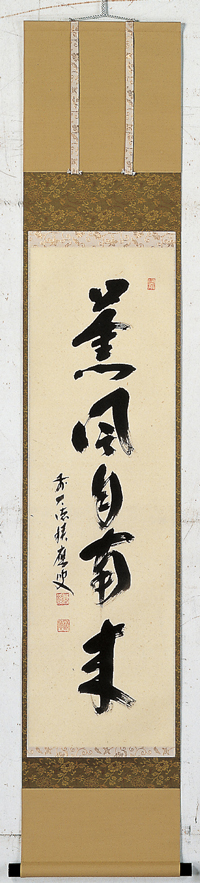 薫風自南来
前大徳積應叟